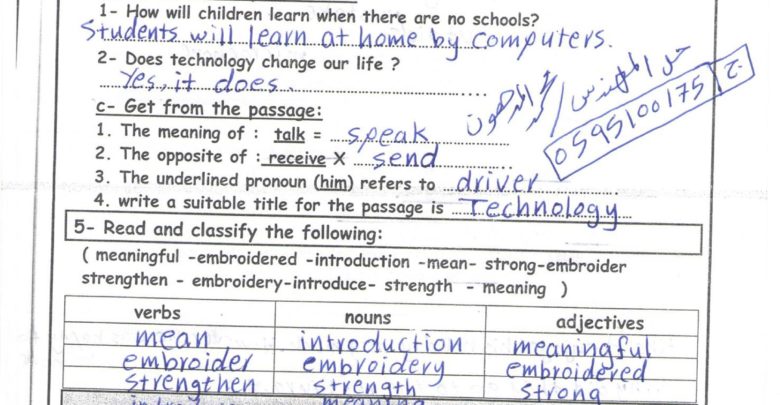 1- How will children learn when there are no schools?
Students will learn at home by computers.
2- Does technology change our life ?
Yes, it does.
حل المهندس / محمد المدهون
ج 0595100175
c- Get from the passage:
1. The meaning of : talk = speak
2. The opposite of : receive X send
3. The underlined pronoun (him) refers to driver
4. write a suitable title for the passage is Technology
5- Read and classify the following:
( meaningful -embroidered -introduction -mean- strong-embroider
strengthen - embroidery-introduce- strength - meaning )
verbs nouns adjectives
mean introduction meaningful
embroider embroidery embroidered
strengthen strength strong
meaning